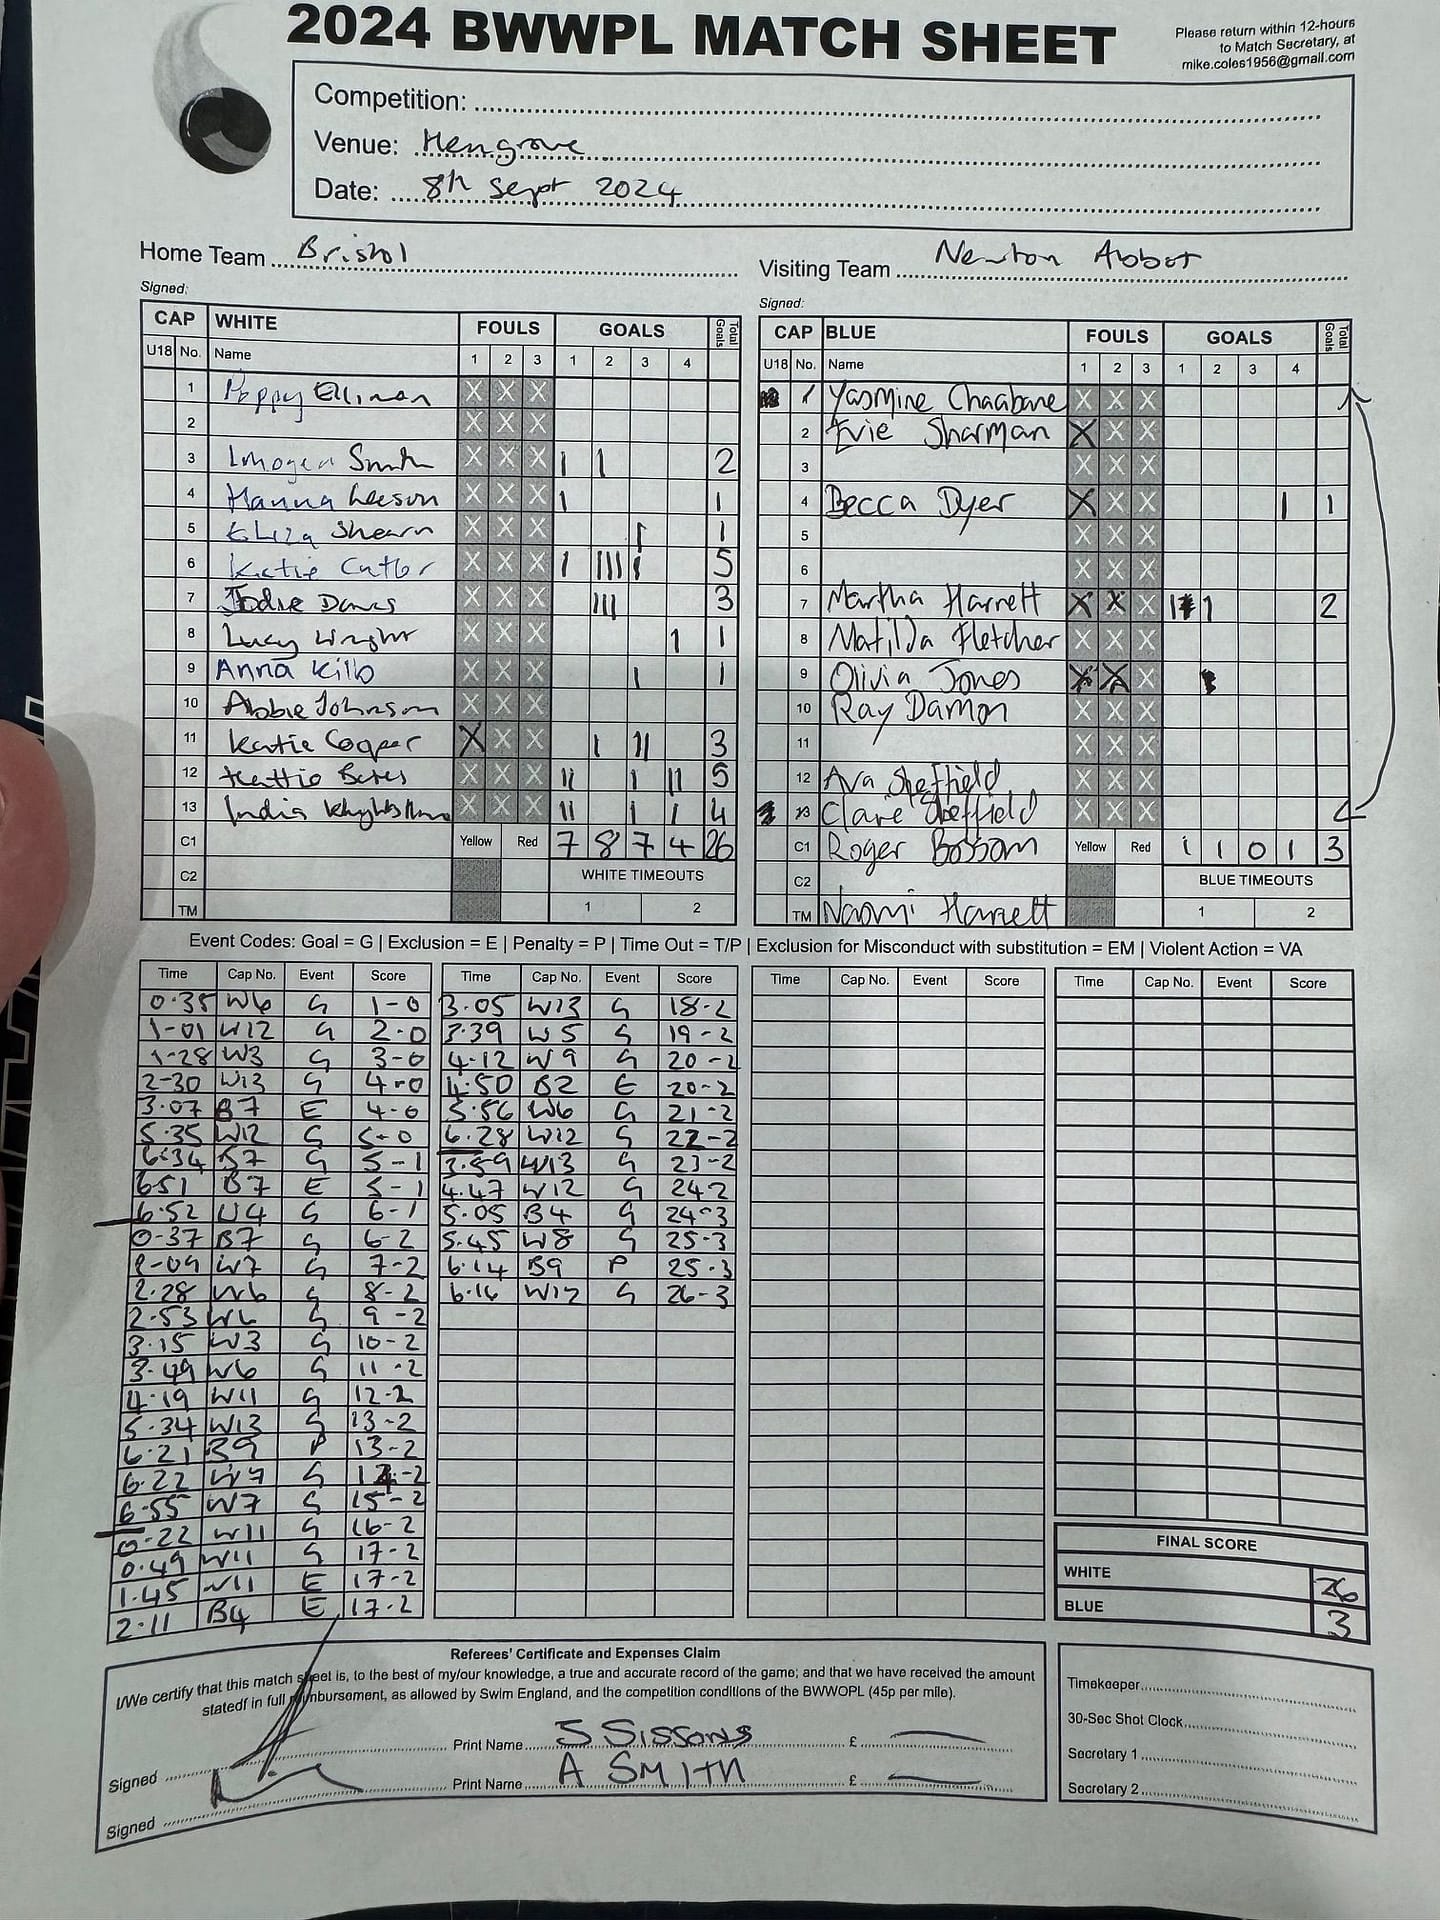 2024 BWWPL MATCH SHEET
Please return within 12-hours
to Match Secretary, at
mike.coles1956@gmail.com
Competition:
Venue: Hengrove
Date: 8th Sept 2024
Home Team Bristol
Visiting Team Newton Abbot
Signed:
Signed:
CAP WHITE FOULS GOALS Total Goals
U18 No. Name 1 2 3 1 2 3 4
1 Poppy Elliman X X X
2 X X X
3 Imogen Smith X X X I I 2
4 Hanna Leeson X X X I 1
5 Eliza Shearn X X X I 1
6 Katie Cutler X X X I IIII I 5
7 Jodie Davis X X X III 3
8 Lucy Wright X X X I 1
9 Anna Killo X X X I 1
10 Abbie Johnson X X X
11 Katie Cooper X X X I II 3
12 Hattie Bates X X X II I II 5
13 India X X X II I I 4
C1 Yellow Red 7 8 7 4 26
C2 WHITE TIMEOUTS
TM 1 2
CAP BLUE FOULS GOALS Total Goals
U18 No. Name 1 2 3 1 2 3 4
1 Yasmine Chaabane X X X
2 Evie Sharman X X X
3 X X X
4 Becca Dyer X X X I 1
5 X X X
6 X X X
7 Martha Harnett X X X I 1 2
8 Matilda Fletcher X X X
9 Olivia Jones X X X
10 Ray Damon X X X
11 X X X
12 Ava Sheffield X X X
13 Clare Sheffield X X X
C1 Roger Bossom Yellow Red 1 1 0 1 3
C2 BLUE TIMEOUTS
TM Naomi Harnett 1 2
Event Codes: Goal = G | Exclusion = E | Penalty = P | Time Out = T/P | Exclusion for Misconduct with substitution = EM | Violent Action = VA
Time Cap No. Event Score
0.35 W6 G 1-0
1-01 W12 G 2-0
1-28 W3 G 3-0
2-30 W13 G 4-0
3.07 B7 E 4-0
5.35 W12 G 5-0
6.34 B7 G 5-1
6.51 B7 E 5-1
6.52 W4 G 6-1
0-37 B7 G 6-2
2-09 W7 G 7-2
2.28 W6 G 8-2
2-53 W6 G 9-2
3.15 W3 G 10-2
3.49 W6 G 11-2
4.19 W11 G 12-2
5.34 W13 G 13-2
6.21 B9 P 13-2
6.22 W7 G 14-2
6.55 W7 G 15-2
0-22 W11 G 16-2
0.49 W11 G 17-2
1.45 W11 E 17-2
2.11 B4 E 17-2
Time Cap No. Event Score
3.05 W13 G 18-2
3.39 W5 G 19-2
4.12 W9 G 20-2
4.50 B2 E 20-2
5.56 W6 G 21-2
6.28 W12 G 22-2
3.59 W13 G 23-2
4.47 W12 G 24-2
5.05 B4 G 24-3
5.45 W8 G 25-3
6.14 B9 P 25-3
6.16 W12 G 26-3
Time Cap No. Event Score
Time Cap No. Event Score
FINAL SCORE
WHITE 26
BLUE 3
Referees' Certificate and Expenses Claim
I/We certify that this match sheet is, to the best of my/our knowledge, a true and accurate record of the game; and that we have received the amount
statedf in full reimbursement, as allowed by Swim England, and the competition conditions of the BWWOPL (45p per mile).
Signed Print Name S Sissons £ —
Signed Print Name A SMITH £ —
Timekeeper
30-Sec Shot Clock
Secretary 1
Secretary 2